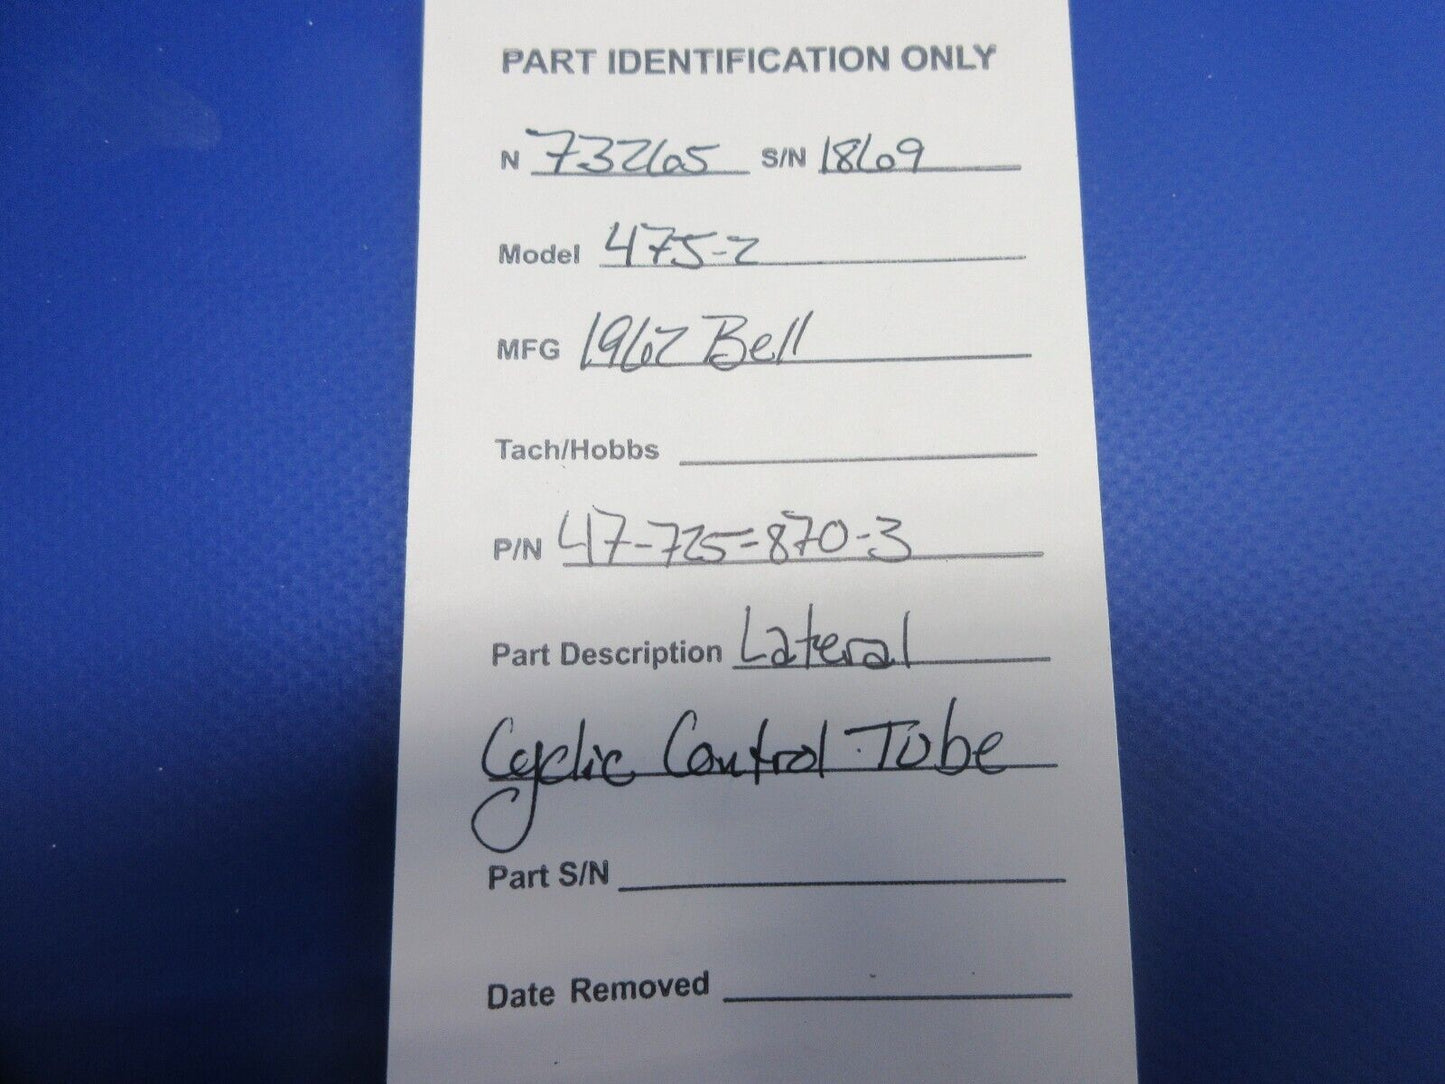 PART IDENTIFICATION ONLY
N 73265 S/N 1869
Model 47J-2
MFG 1962 Bell
Tach/Hobbs
P/N 47-725-870-3
Part Description Lateral
Cyclic Control Tube
Part S/N
Date Removed